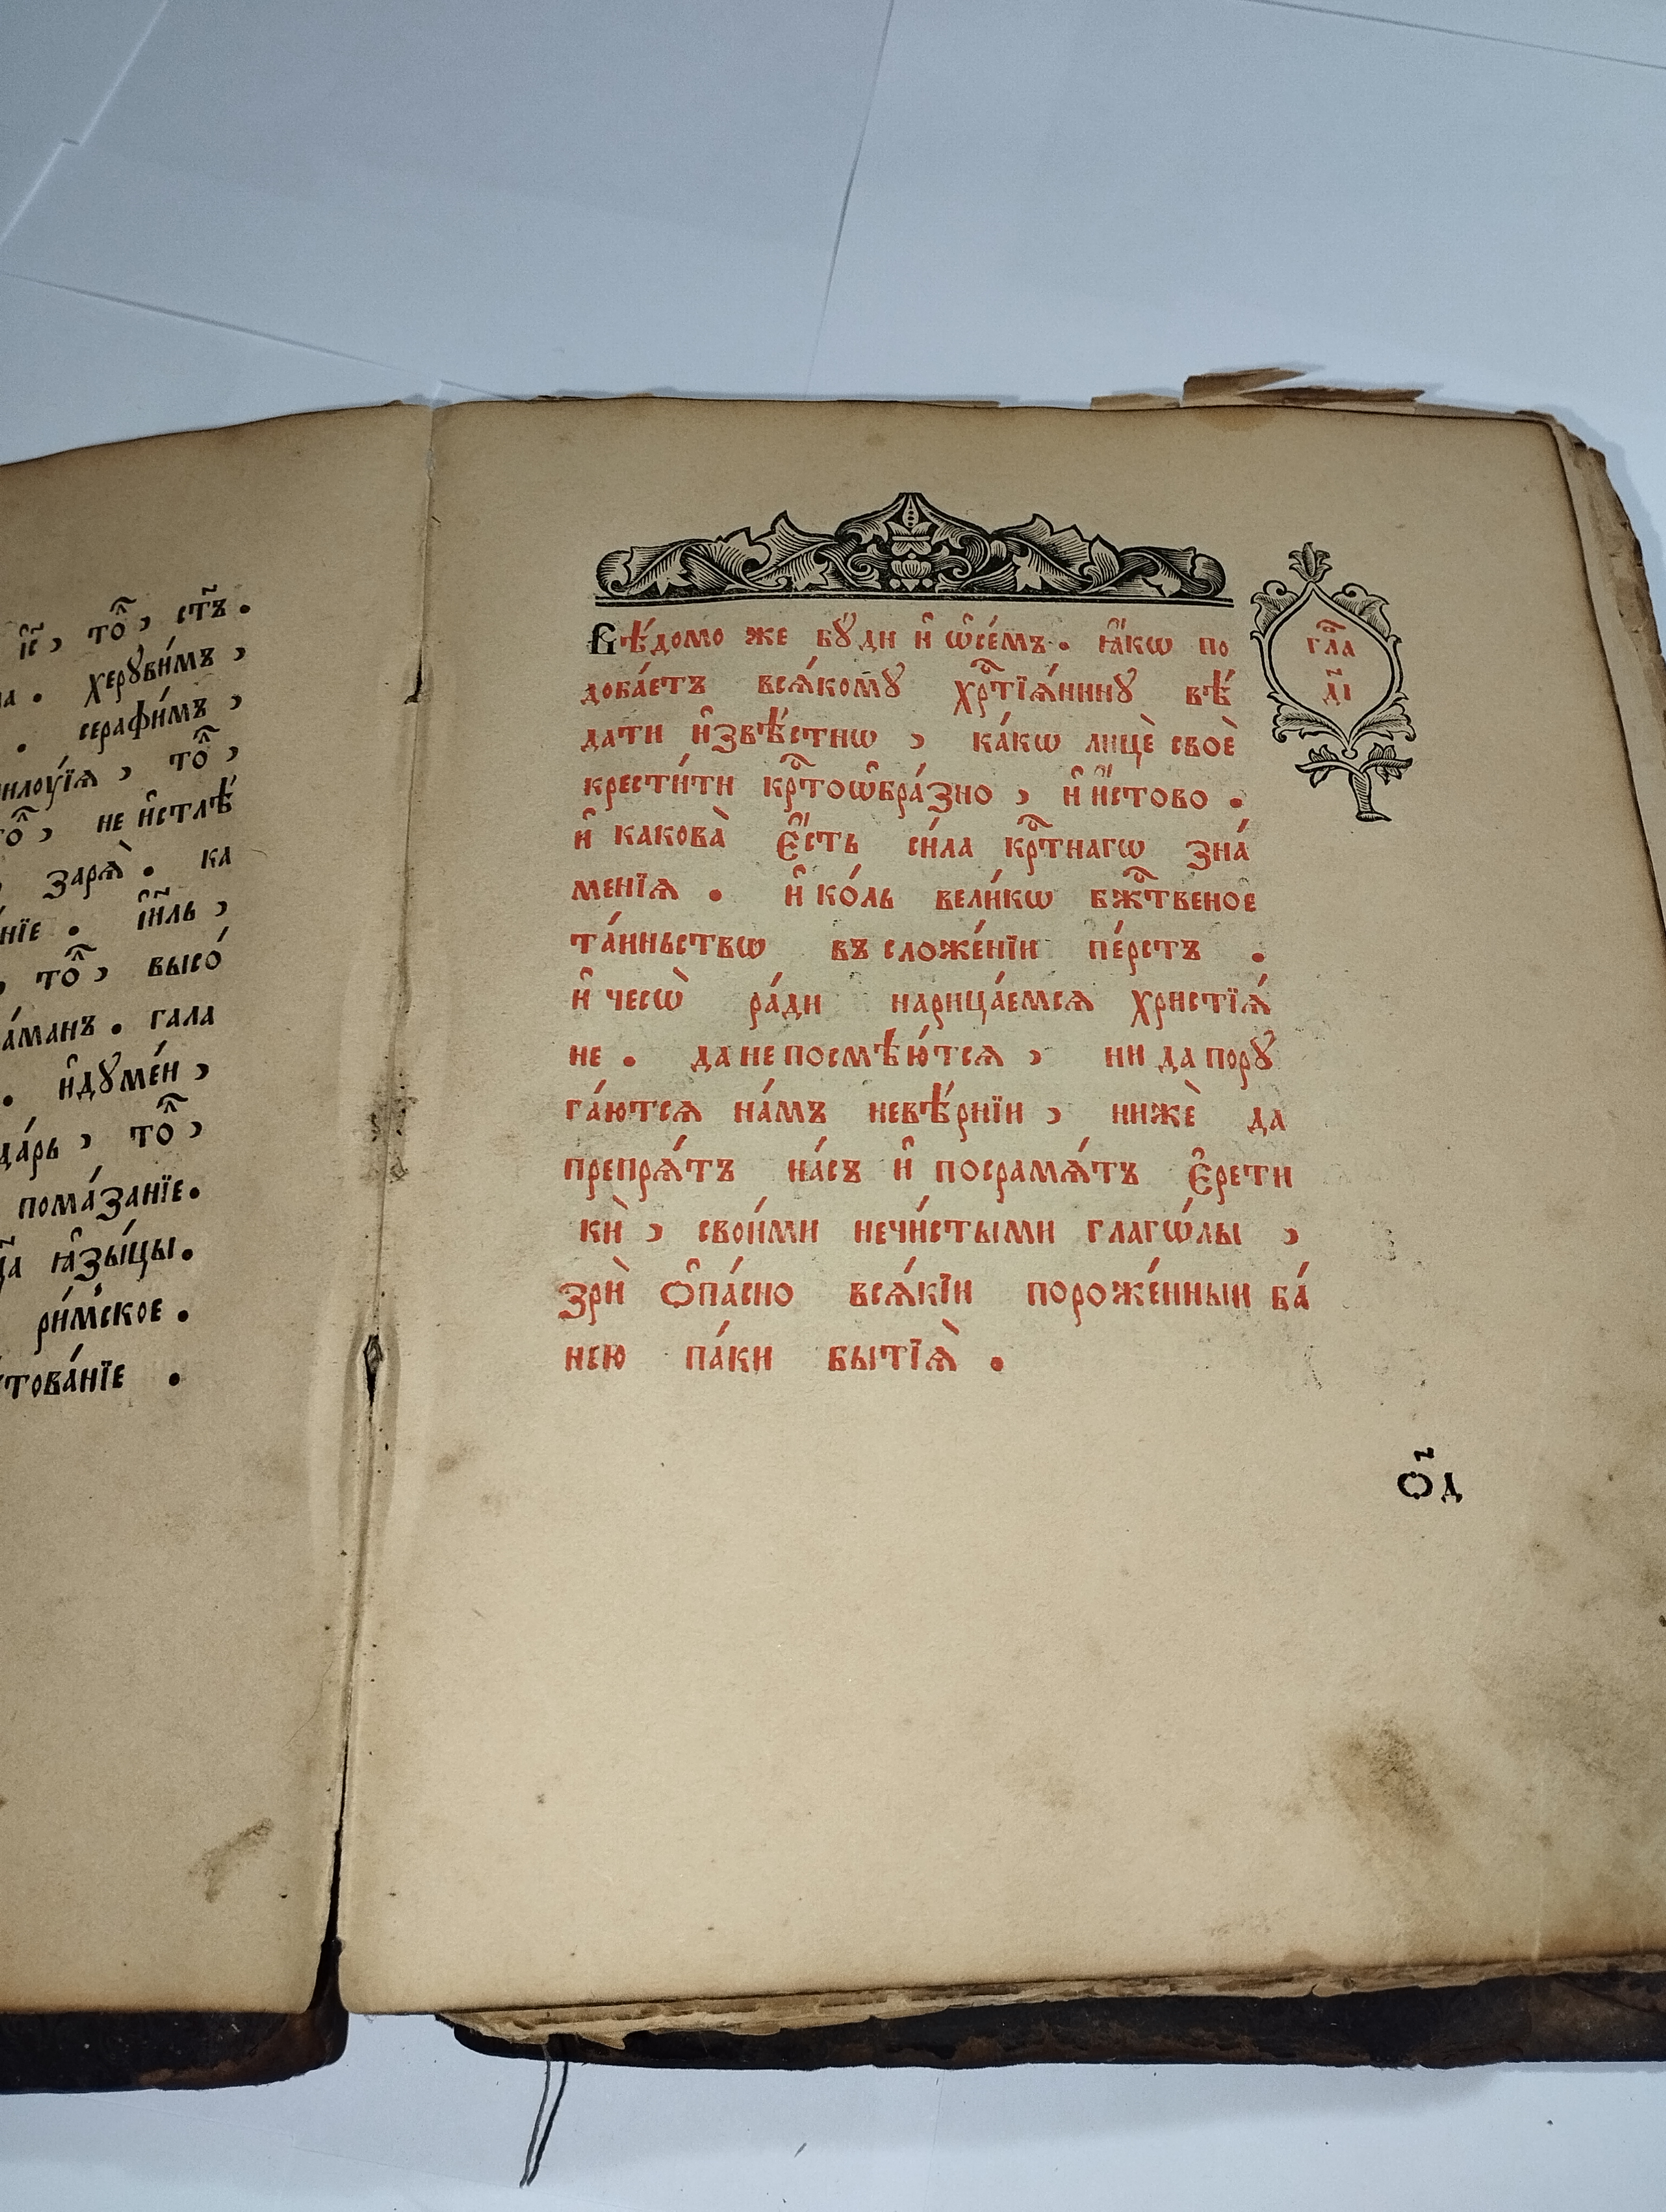 і҆с҃, то̑, ст҃ъ.
херꙋви́мъ,
серафи́мъ,
то̑,
не и҆стлѣ́
заря̀. ка
і҆и҃ль,
то̑, высо́
гала
и҆дꙋме́н,
то̑,
пома́занїе.
ꙗ҆зы́цы.
ри́мское.
Вѣ́домо же бꙋди и҆ ѡ҆се́мъ. ꙗ҆́кѡ по
доба́етъ всѧ́комꙋ хрⷭ҇тїѧ́нинꙋ вѣ́
дати и҆звѣ́стнѡ, ка́кѡ лицѐ своѐ
крести́ти крⷭ҇тоѡ҆бра́зно, и҆ и҆́стово.
и҆ какова̀ є҆́сть си́ла крⷭ҇тнагѡ зна́
менїѧ. и҆ ко́ль вели́кѡ бжⷭ҇твеное
та́иньствѡ въ сложе́нїи пе́рстъ.
и҆ чесѡ̀ ра́ди нарица́емсѧ христїѧ́
не. да не посмѣю́тсѧ, ни да порꙋ
га́ютсѧ на́мъ невѣ́рнїи, нижѐ да
препрѧ́тъ на́съ и҆ посрамѧ́тъ є҆рети
кѝ, свои́ми нечи́стыми глагѡ́лы,
зрѝ ѻ҆па́сно всѧ́кїи пороже́нныи ба́
нею па́ки бытїѧ̀.
глⷡ҇а
д҃і
ѻ҃д